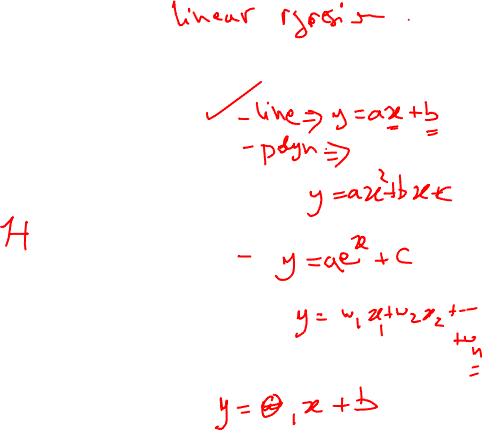 linear rgresin .
✓ - line ⇒ y = ax + b
- polyn. ⇒
y = ax² + bx + c
H
- y = ae^x + c
y = w₁x₁ + w₂x₂ + --
+ wn
y = θ₁x + b